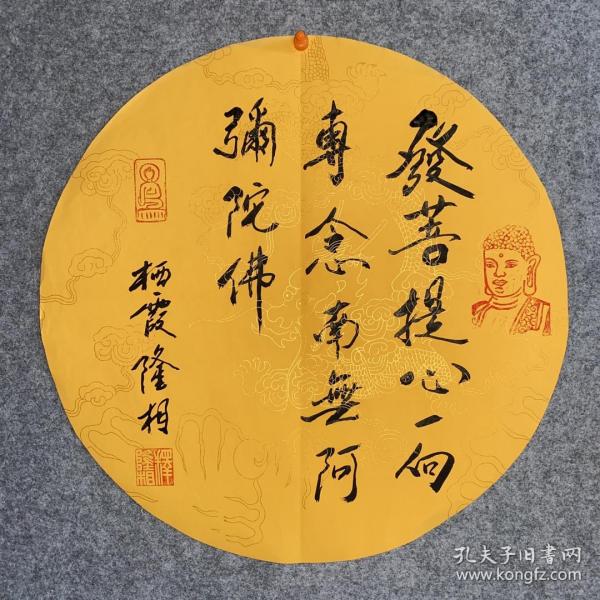 發菩提心一向
專念南無阿
彌陀佛
栖霞隆相
釋
隆相
孔夫子旧书网
www.kongfz.com